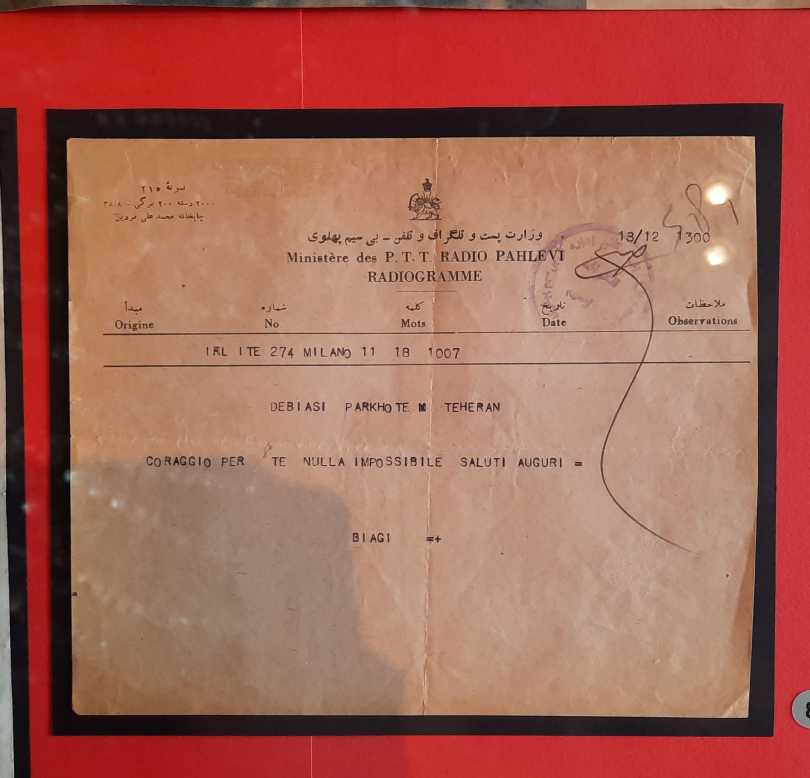 نمرهٔ ۲۱۵
چاپخانه محمد علی فردین
وزارت پست و تلگراف و تلفن - بی سیم پهلوی
18/12 1300
Ministère des P. T. T. RADIO PAHLEVI
RADIOGRAMME
مبدأ شماره کلمه تاریخ ملاحظات
Origine No Mots Date Observations
IRL ITE 274 MILANO 11 18 1007
DEBIASI PARKHOTEM TEHERAN
CORAGGIO PER TE NULLA IMPOSSIBILE SALUTI AUGURI =
BIAGI =+